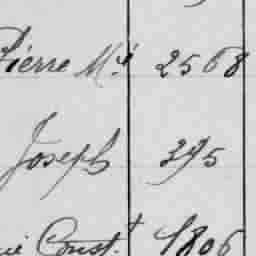 Pierre Mie 2568
Joseph 395
Const.t 1806